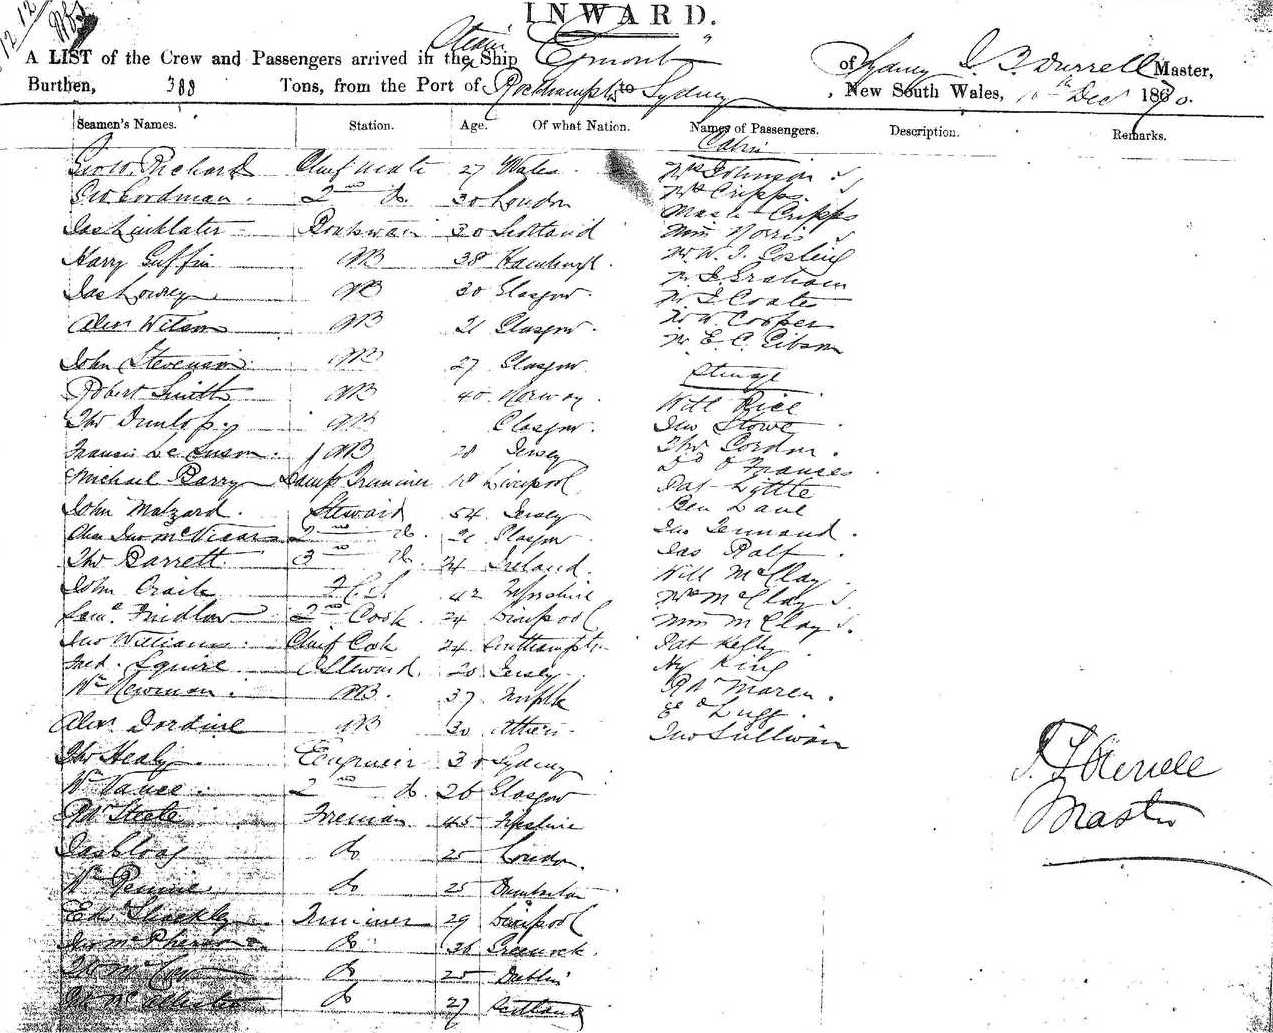 12/12
INWARD.
A LIST of the Crew and Passengers arrived in the Steam Ship Egmont of Sydney Master,
Burthen, 388 Tons, from the Port of Rockhampton to Sydney, New South Wales, Decr 1870.
Seamen's Names. Station. Age. Of what Nation. Names of Passengers. Description. Remarks.
Cabin
Geo W. Richards Chief Mate 27 Wales. Mrs Johnson
Geo Goodman. 2nd Do. 30 London Mrs Cripps
Mastr Cripps
Jas Linklater Boatswain 30 Scotland Miss Norris
Harry Griffin AB 38 Hamburgh. Mr W. J. Gosling
Jas Lowrey AB 30 Glasgow. Mr J. Graham
Mr J. Coates
Alex Wilson AB 21 Glasgow. Mr W. Cooper
Mr E. C. Gibson
John Stevenson AB 27 Glasgow
Steerage
Robert Smith AB 40 Norway. Will Rice
Thos Dunlop AB Glasgow. Jno Stowe
Francis Le AB 28 Jersey Thos Gordon.
Do Frances
Michael Barry Lamp Trimmer Liverpool Pat Little
John Malzard. Steward 54 Jersey Ben Lane
Alexr Jno McVicar 2nd do. 21 Glasgow Jno Tennand.
Thos Barrett 3rd do. 24 Ireland. Jas Ralf
John Craik F.C.S 42 Ayrshire Will McClay
Mrs McClay
Saml Findlow 2nd Cook 24 Liverpool Miss McClay
Jno Williams Chief Cook 24 Southampton Pat Kelly
Fred. Squire Steward 20 Jersey Hy King
Wm Newman. AB. 37 Norfolk Rbt Maren.
Lugg
Alexr AB 30 Athens. Jno Sullivan
Thos Healy. Engineer Sydney
Wm Vance. 2nd do. 26 Glasgow
Rbt Steele Fireman 45 Ayrshire
Jas do 25 London.
Wm Rennie do 25 Dumbarton
Edw Trimmer 29 Liverpool
Jno McPherson do 26 Greenock.
Thos do 25 Dublin
McAllister do 27 Scotland
Master